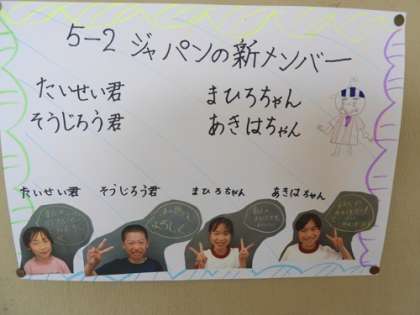 5-2 ジャパンの新メンバー
たいせい君 まひろちゃん
そうじろう君 あきはちゃん
たいせい君 そうじろう君 まひろちゃん あきはちゃん
よろしく